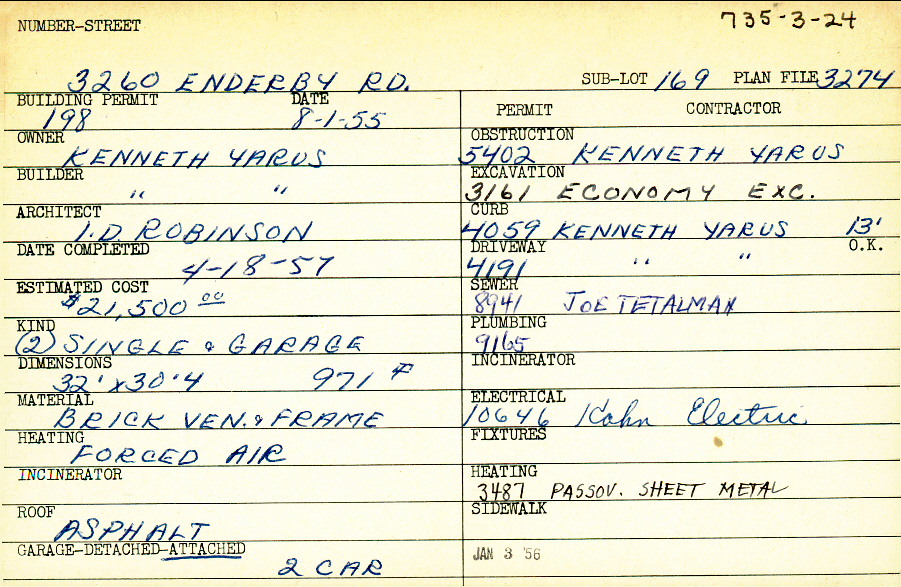 735-3-24
NUMBER-STREET
3260 ENDERBY RD. SUB-LOT 169 PLAN FILE 3274
BUILDING PERMIT DATE
198 8-1-55
OWNER
KENNETH YARUS
BUILDER
" "
ARCHITECT
I.D. ROBINSON
DATE COMPLETED
4-18-57
ESTIMATED COST
$21,500 00
KIND
(2) SINGLE & GARAGE
DIMENSIONS
32' x 30'4 971
MATERIAL
BRICK VEN. & FRAME
HEATING
FORCED AIR
INCINERATOR
ROOF
ASPHALT
GARAGE-DETACHED-ATTACHED
2 CAR
PERMIT CONTRACTOR
OBSTRUCTION
5402 KENNETH YARUS
EXCAVATION
3161 ECONOMY EXC.
CURB
4059 KENNETH YARUS 13'
DRIVEWAY O.K.
4191 " "
SEWER
8941 JOE TETALMAN
PLUMBING
9165
INCINERATOR
ELECTRICAL
10646 Kahn Electric
FIXTURES
HEATING
3487 PASSOV. SHEET METAL
SIDEWALK
JAN 3 '56